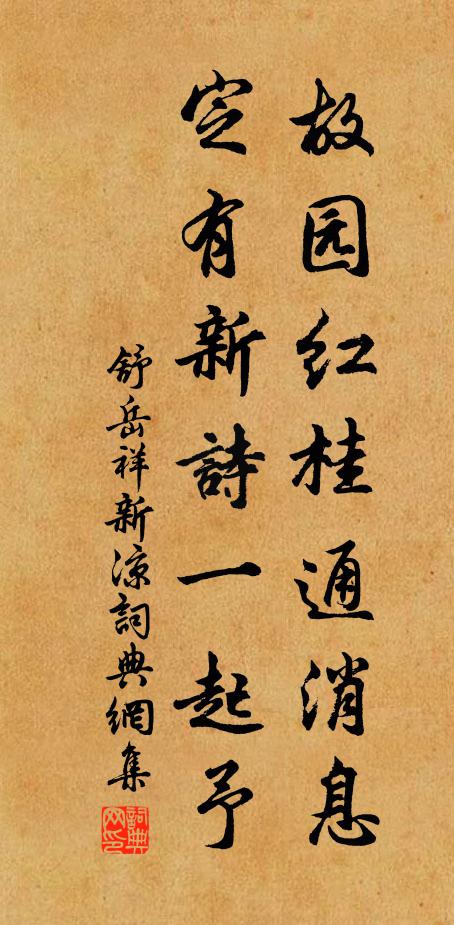 故园红桂通消息
定有新詩一起予
舒岳祥新凉詞典網集
詞典网印